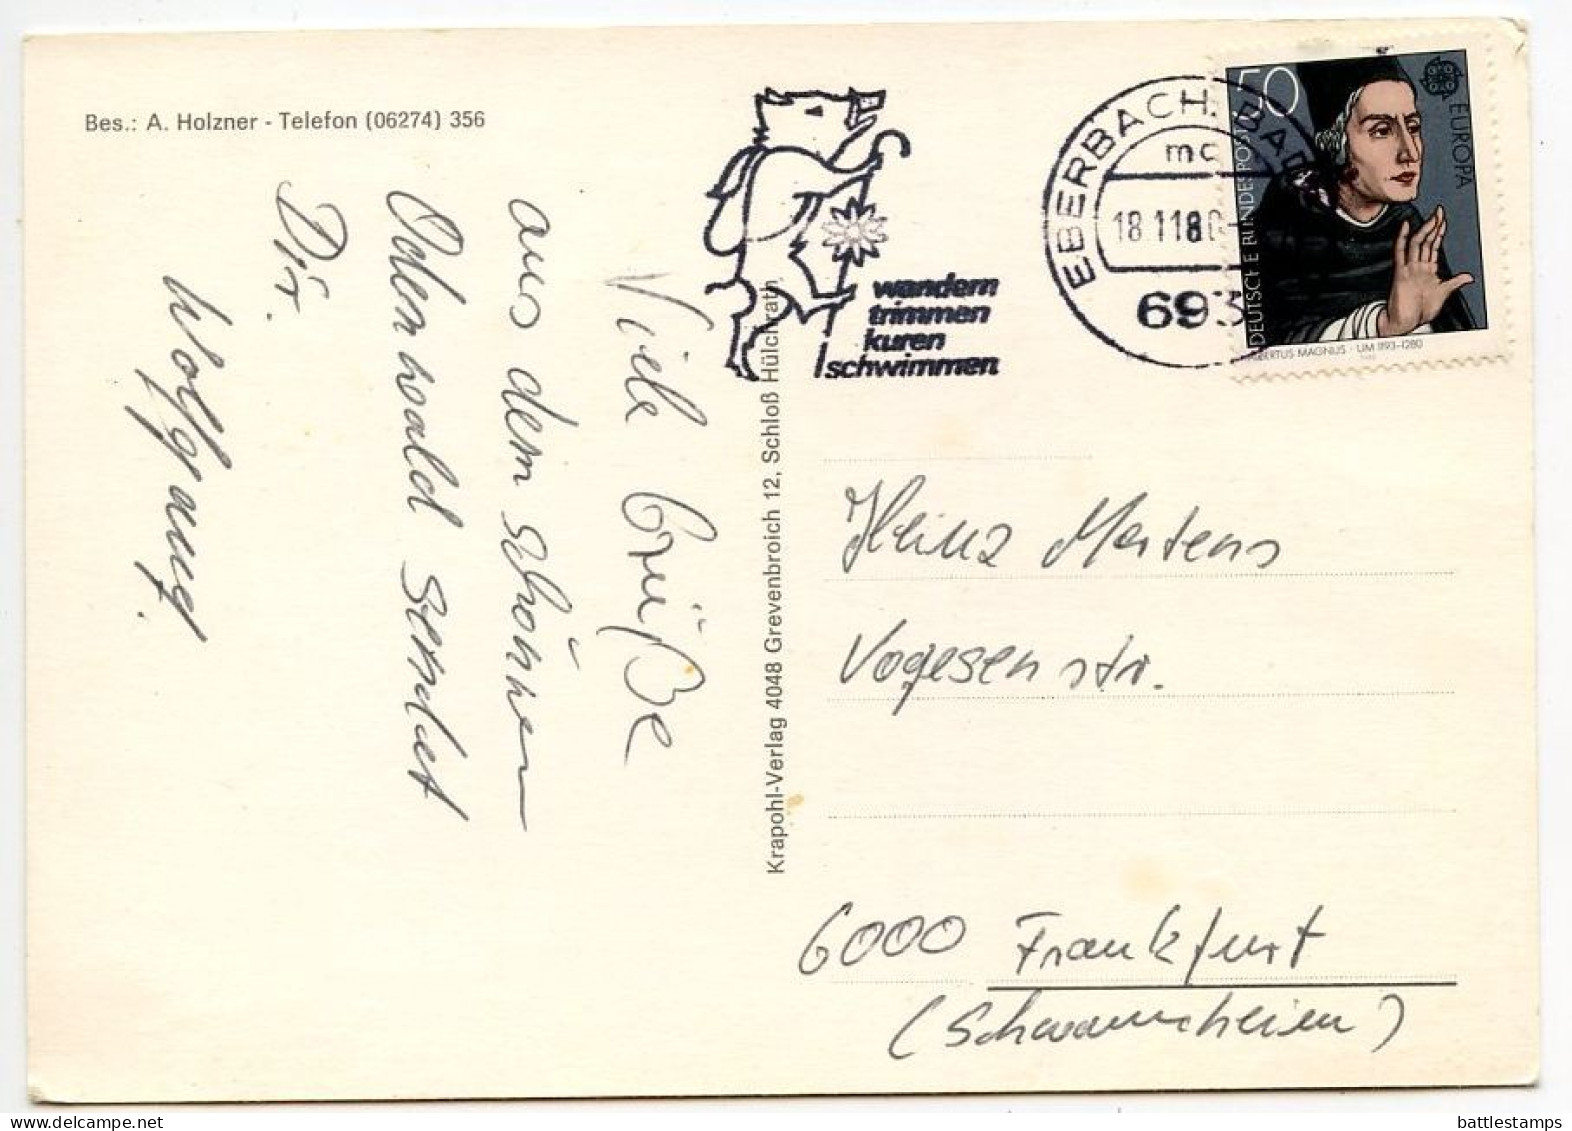 Bes.: A. Holzner - Telefon (06274) 356
Viele Grüße
aus dem schönen
Odenwald sendet
Dir.
Wolfgang.
Krapohl-Verlag 4048 Grevenbroich 12, Schloß Hülchrath
wandern
trimmen
kuren
schwimmen
EBERBACH, BADEN
mc
18.11.80-
693
50
DEUTSCHE BUNDESPOST
EUROPA
ALBERTUS MAGNUS · UM 1193-1280
Heinz Martens
Vogesenstr.
6000 Frankfurt
(Schwannheim)
battlestamps